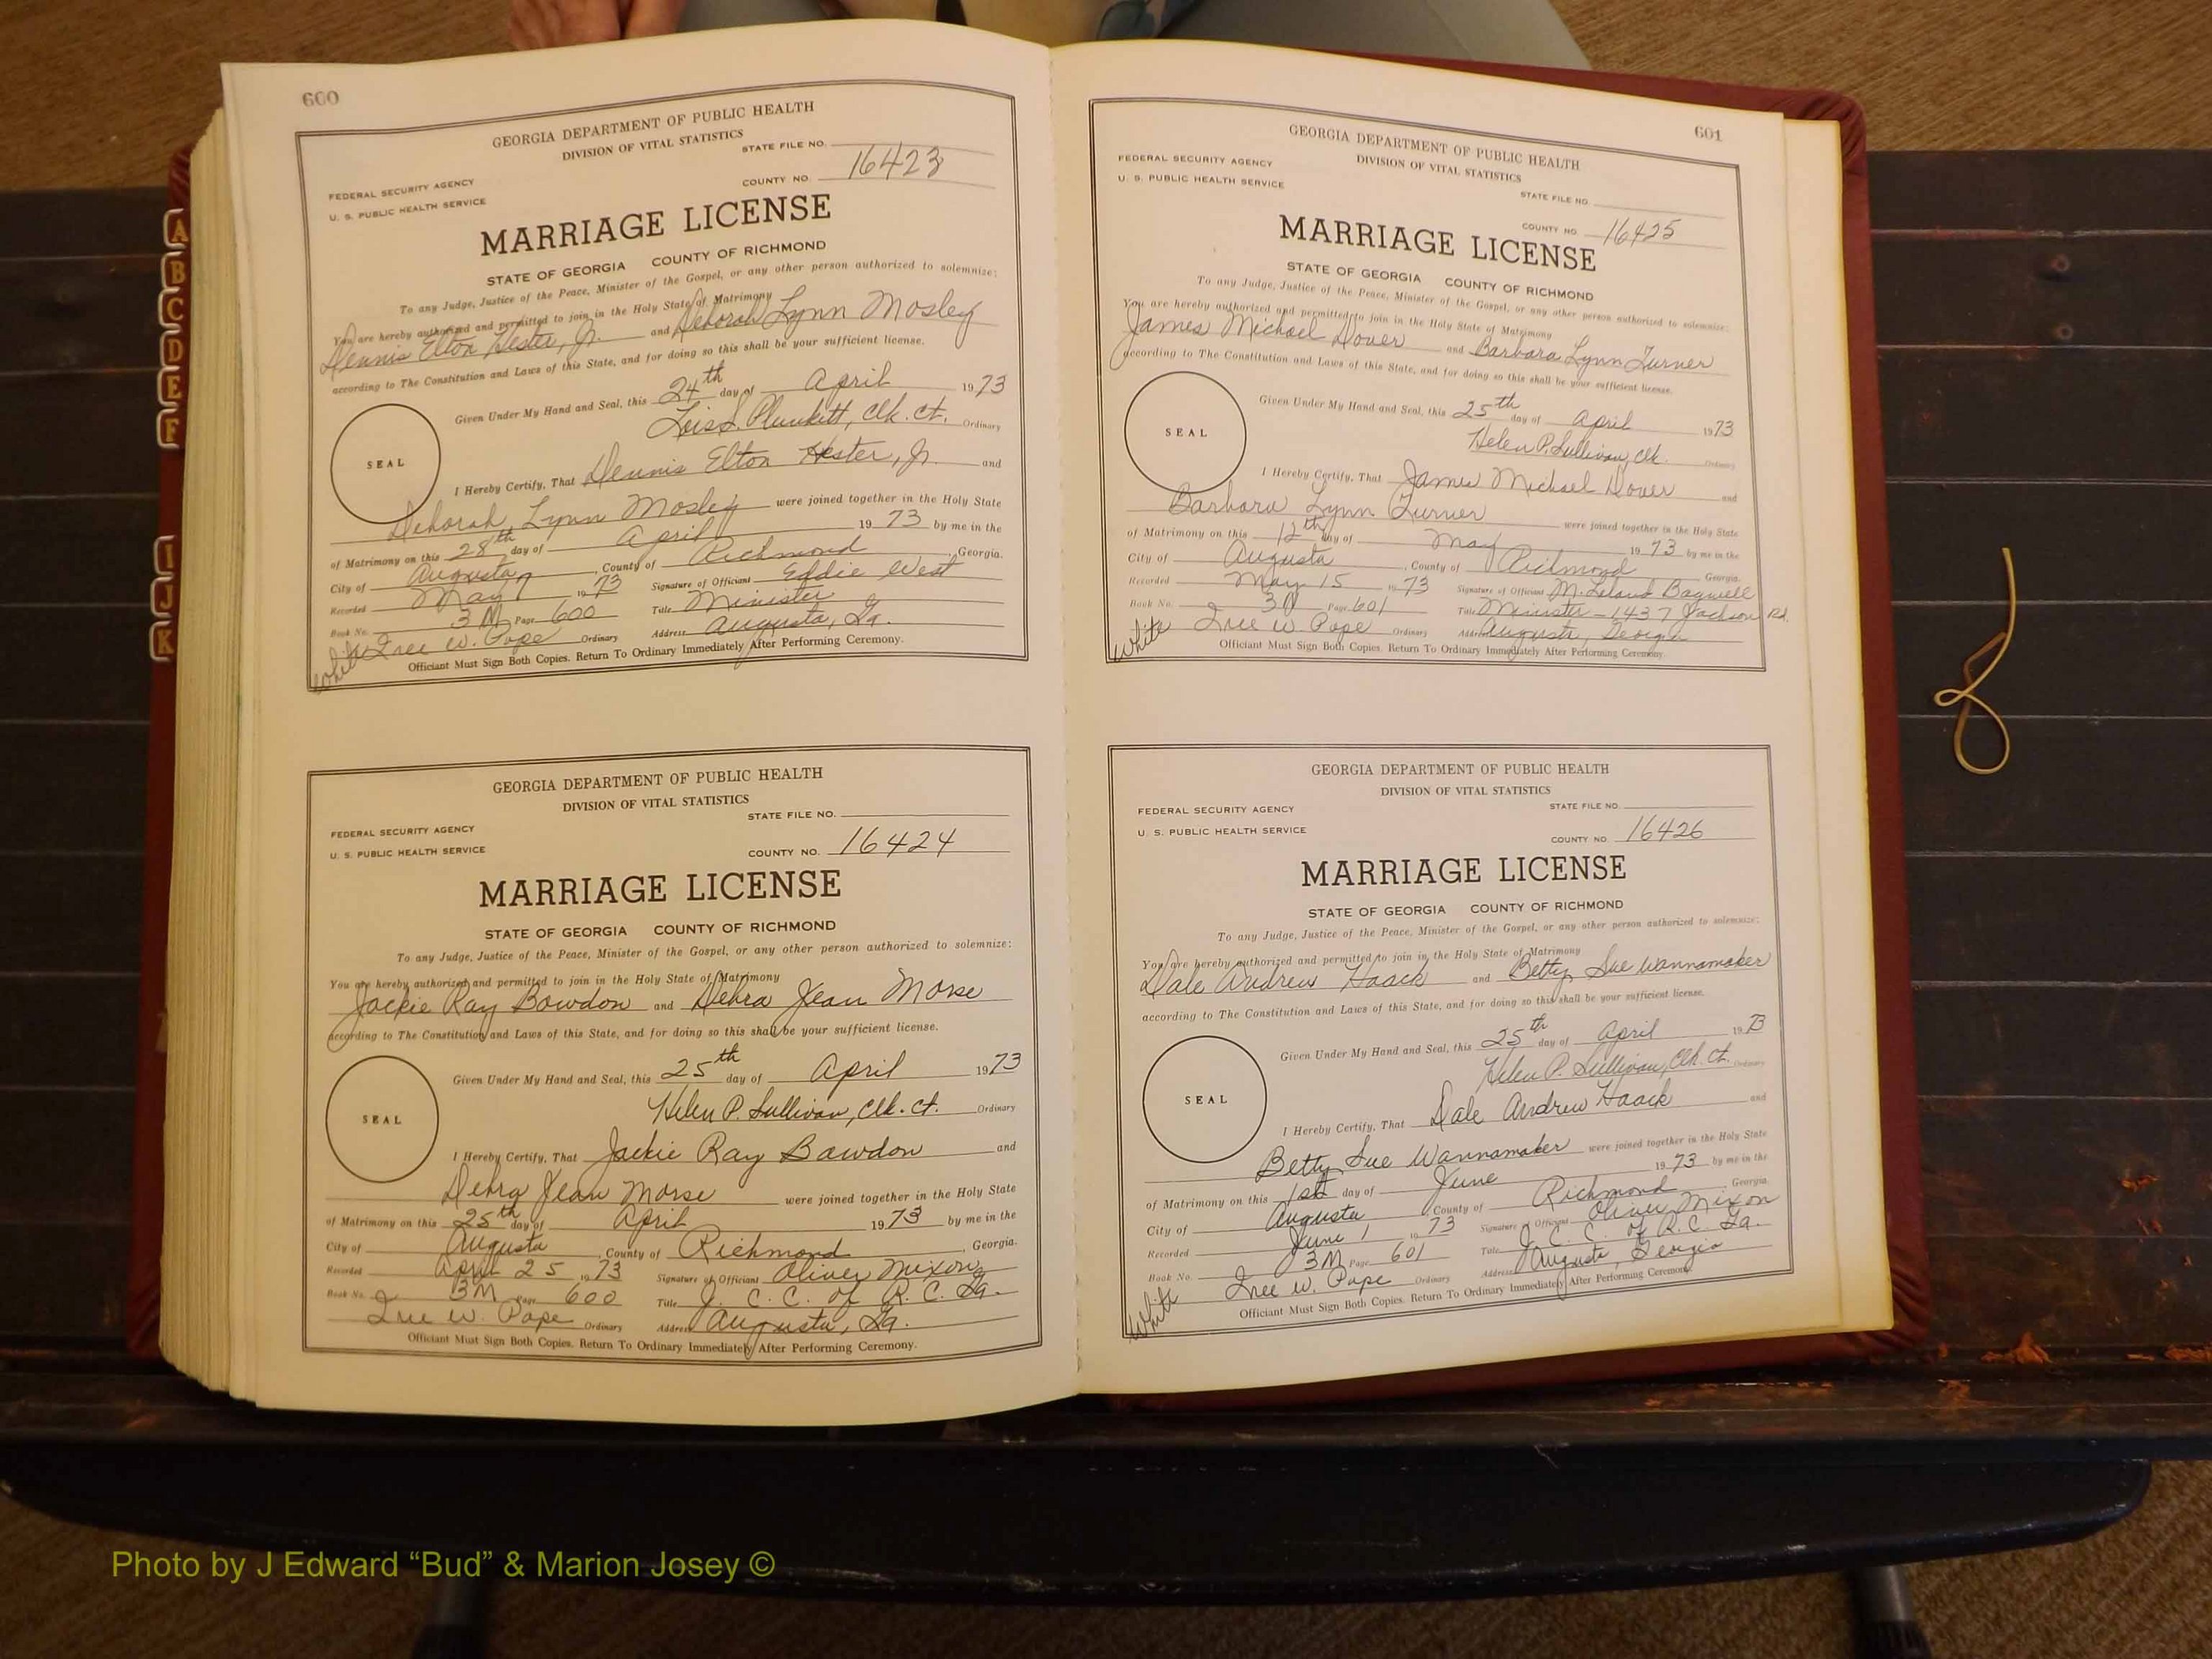 600
GEORGIA DEPARTMENT OF PUBLIC HEALTH
DIVISION OF VITAL STATISTICS
STATE FILE NO.
FEDERAL SECURITY AGENCY
U. S. PUBLIC HEALTH SERVICE
COUNTY NO. 16423
MARRIAGE LICENSE
STATE OF GEORGIA COUNTY OF RICHMOND
To any Judge, Justice of the Peace, Minister of the Gospel, or any other person authorized to solemnize:
You are hereby authorized and permitted to join in the Holy State of Matrimony
Dennis Elton Hester, Jr. and Deborah Lynn Mosley
according to The Constitution and Laws of this State, and for doing so this shall be your sufficient license.
Given Under My Hand and Seal, this 24th day of April 1973
Lois S. Plunkett, Clk. Ct. Ordinary
SEAL
I Hereby Certify, That Dennis Elton Hester, Jr. and
Deborah Lynn Mosley were joined together in the Holy State
of Matrimony on this 28th day of April 1973 by me in the
City of Augusta, County of Richmond, Georgia.
Recorded May 7 1973 Signature of Officiant Eddie West
Book No. 3M Page 600 Title Minister
Iree W. Pope Ordinary Address Augusta, Ga.
Officiant Must Sign Both Copies. Return To Ordinary Immediately After Performing Ceremony.
White
GEORGIA DEPARTMENT OF PUBLIC HEALTH
DIVISION OF VITAL STATISTICS
STATE FILE NO.
FEDERAL SECURITY AGENCY
U. S. PUBLIC HEALTH SERVICE
COUNTY NO. 16424
MARRIAGE LICENSE
STATE OF GEORGIA COUNTY OF RICHMOND
To any Judge, Justice of the Peace, Minister of the Gospel, or any other person authorized to solemnize:
You are hereby authorized and permitted to join in the Holy State of Matrimony
Jackie Ray Bowdon and Debra Jean Morse
according to The Constitution and Laws of this State, and for doing so this shall be your sufficient license.
Given Under My Hand and Seal, this 25th day of April 1973
Helen P. Sullivan, Clk. Ct. Ordinary
SEAL
I Hereby Certify, That Jackie Ray Bawdon and
Debra Jean Morse were joined together in the Holy State
of Matrimony on this 25th day of April 1973 by me in the
City of Augusta, County of Richmond, Georgia.
Recorded April 25 1973 Signature of Officiant Oliver Mixon
Book No. 3M Page 600 Title J. C. C. of R. C. Ga.
Iree W. Pope Ordinary Address Augusta, Ga.
Officiant Must Sign Both Copies. Return To Ordinary Immediately After Performing Ceremony.
601
GEORGIA DEPARTMENT OF PUBLIC HEALTH
DIVISION OF VITAL STATISTICS
FEDERAL SECURITY AGENCY
U. S. PUBLIC HEALTH SERVICE
STATE FILE NO.
COUNTY NO. 16425
MARRIAGE LICENSE
STATE OF GEORGIA COUNTY OF RICHMOND
To any Judge, Justice of the Peace, Minister of the Gospel, or any other person authorized to solemnize:
You are hereby authorized and permitted to join in the Holy State of Matrimony
James Michael Dover and Barbara Lynn Turner
according to The Constitution and Laws of this State, and for doing so this shall be your sufficient license.
Given Under My Hand and Seal, this 25th day of April 1973
Helen P. Sullivan, Clk. Ordinary
SEAL
I Hereby Certify, That James Michael Dover and
Barbara Lynn Turner were joined together in the Holy State
of Matrimony on this 12th day of May 1973 by me in the
City of Augusta, County of Richmond Georgia.
Recorded May 15 1973 Signature of Officiant M. Leland Bagwell
Book No. Page 601 Title Minister - 1437 Jackson Rd.
Iree W. Pope Ordinary Address Augusta, Georgia
Officiant Must Sign Both Copies. Return To Ordinary Immediately After Performing Ceremony.
White
GEORGIA DEPARTMENT OF PUBLIC HEALTH
DIVISION OF VITAL STATISTICS
STATE FILE NO.
FEDERAL SECURITY AGENCY
U. S. PUBLIC HEALTH SERVICE
COUNTY NO. 16426
MARRIAGE LICENSE
STATE OF GEORGIA COUNTY OF RICHMOND
To any Judge, Justice of the Peace, Minister of the Gospel, or any other person authorized to solemnize:
You are hereby authorized and permitted to join in the Holy State of Matrimony
Dale Andrew Haack and Betty Sue Wannamaker
according to The Constitution and Laws of this State, and for doing so this shall be your sufficient license.
Given Under My Hand and Seal, this 25th day of April 1973
Helen P. Sullivan, Clk. Ct. Ordinary
SEAL
I Hereby Certify, That Dale Andrew Haack and
Betty Sue Wannamaker were joined together in the Holy State
of Matrimony on this 1st day of June 1973 by me in the
City of Augusta, County of Richmond, Georgia.
Recorded June 1 1973 Signature of Officiant Oliver Mixon
Book No. 3M Page 601 Title J. C. C. of R. C. Ga.
Iree W. Pope Ordinary Address Augusta, Georgia
Officiant Must Sign Both Copies. Return To Ordinary Immediately After Performing Ceremony.
White
A
B
C
D
E
F
I
J
K
Photo by J Edward “Bud” & Marion Josey ©